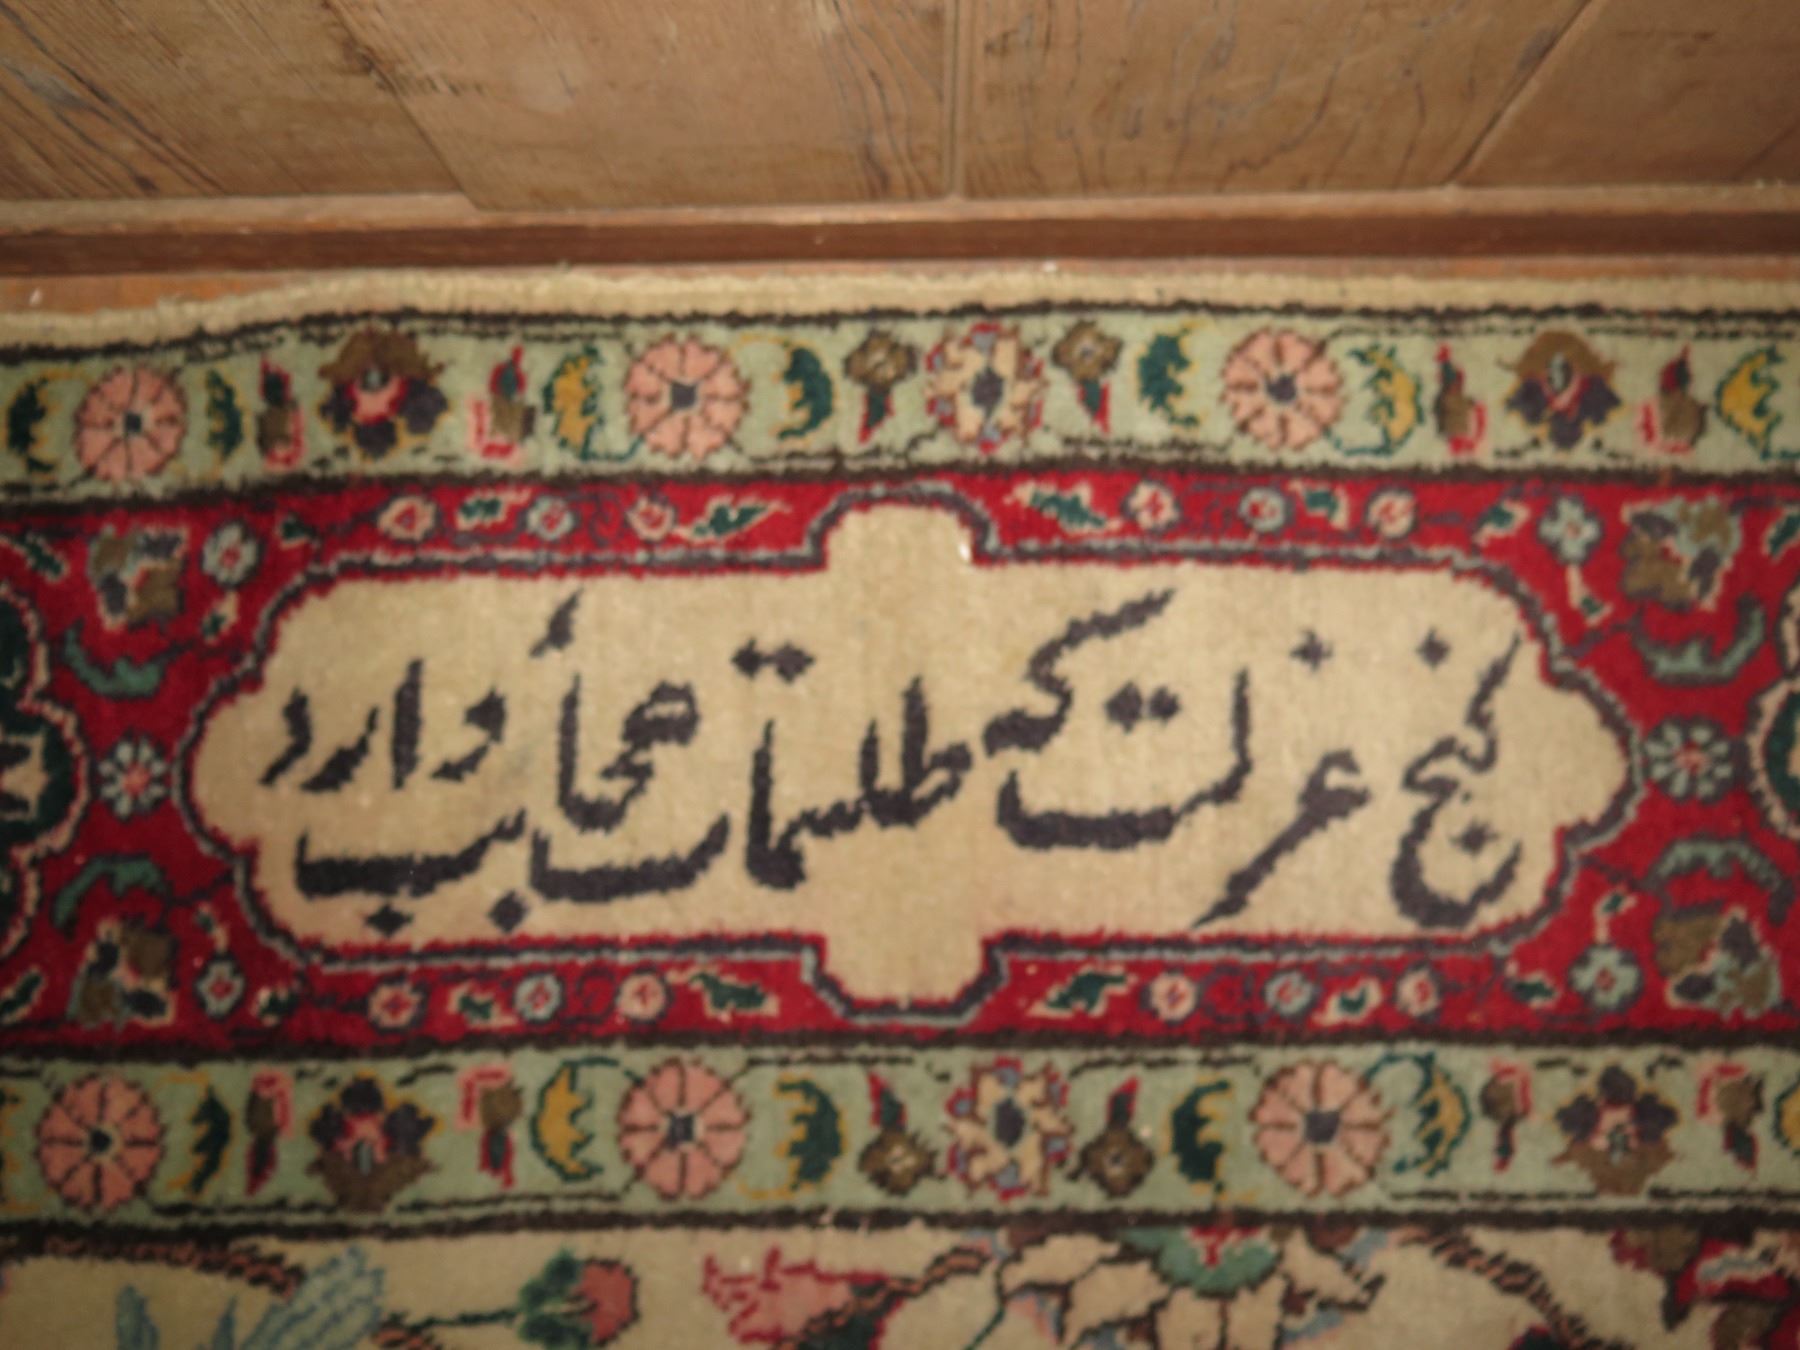 گنج عزلت که طلسمات عجائب دارد